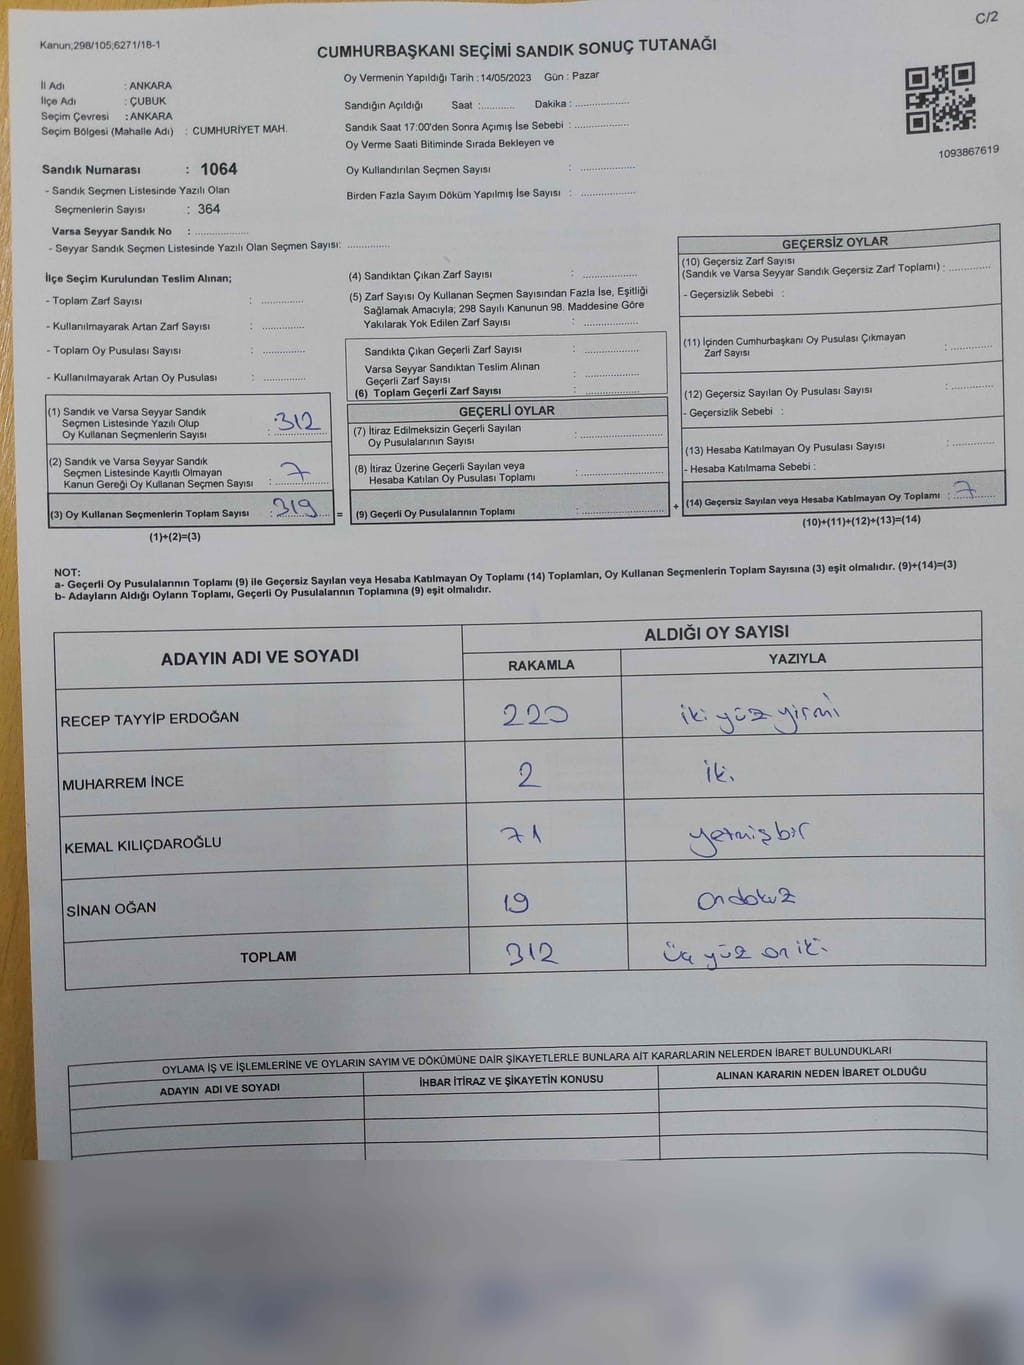 C/2
Kanun;298/105;6271/18-1
CUMHURBAŞKANI SEÇİMİ SANDIK SONUÇ TUTANAĞI
İl Adı : ANKARA
İlçe Adı : ÇUBUK
Seçim Çevresi : ANKARA
Seçim Bölgesi (Mahalle Adı) : CUMHURİYET MAH.
Sandık Numarası : 1064
- Sandık Seçmen Listesinde Yazılı Olan
Seçmenlerin Sayısı : 364
Varsa Seyyar Sandık No : ..................
- Seyyar Sandık Seçmen Listesinde Yazılı Olan Seçmen Sayısı: ..............
Oy Vermenin Yapıldığı Tarih : 14/05/2023 Gün : Pazar
Sandığın Açıldığı Saat :............ Dakika : ..................
Sandık Saat 17:00'den Sonra Açımış İse Sebebi : ..................
Oy Verme Saati Bitiminde Sırada Bekleyen ve
Oy Kullandırılan Seçmen Sayısı : ..................
Birden Fazla Sayım Döküm Yapılmış İse Sayısı : ..................
1093867619
İlçe Seçim Kurulundan Teslim Alınan;
- Toplam Zarf Sayısı : ..............
- Kullanılmayarak Artan Zarf Sayısı : ..............
- Toplam Oy Pusulası Sayısı : ..............
- Kullanılmayarak Artan Oy Pusulası : ..............
(1) Sandık ve Varsa Seyyar Sandık
Seçmen Listesinde Yazılı Olup
Oy Kullanan Seçmenlerin Sayısı : 312
(2) Sandık ve Varsa Seyyar Sandık
Seçmen Listesinde Kayıtlı Olmayan
Kanun Gereği Oy Kullanan Seçmen Sayısı : 7
(3) Oy Kullanan Seçmenlerin Toplam Sayısı : 319
(1)+(2)=(3)
(4) Sandıktan Çıkan Zarf Sayısı : ..................
(5) Zarf Sayısı Oy Kullanan Seçmen Sayısından Fazla İse, Eşitliği
Sağlamak Amacıyla; 298 Sayılı Kanunun 98. Maddesine Göre
Yakılarak Yok Edilen Zarf Sayısı : ..................
Sandıkta Çıkan Geçerli Zarf Sayısı : ..................
Varsa Seyyar Sandıktan Teslim Alınan
Geçerli Zarf Sayısı : ..................
(6) Toplam Geçerli Zarf Sayısı : ..................
GEÇERLİ OYLAR
(7) İtiraz Edilmeksizin Geçerli Sayılan
Oy Pusulalarının Sayısı : ..................
(8) İtiraz Üzerine Geçerli Sayılan veya
Hesaba Katılan Oy Pusulası Toplamı : ..................
= (9) Geçerli Oy Pusulalarının Toplamı : ..................
GEÇERSİZ OYLAR
(10) Geçersiz Zarf Sayısı
(Sandık ve Varsa Seyyar Sandık Geçersiz Zarf Toplamı) : ..............
- Geçersizlik Sebebi :
(11) İçinden Cumhurbaşkanı Oy Pusulası Çıkmayan
Zarf Sayısı : ..............
(12) Geçersiz Sayılan Oy Pusulası Sayısı : ..............
- Geçersizlik Sebebi :
(13) Hesaba Katılmayan Oy Pusulası Sayısı : ..............
- Hesaba Katılmama Sebebi :
+ (14) Geçersiz Sayılan veya Hesaba Katılmayan Oy Toplamı : 7
(10)+(11)+(12)+(13)=(14)
NOT:
a- Geçerli Oy Pusulalarının Toplamı (9) ile Geçersiz Sayılan veya Hesaba Katılmayan Oy Toplamı (14) Toplamları, Oy Kullanan Seçmenlerin Toplam Sayısına (3) eşit olmalıdır. (9)+(14)=(3)
b- Adayların Aldığı Oyların Toplamı, Geçerli Oy Pusulalarının Toplamına (9) eşit olmalıdır.
ADAYIN ADI VE SOYADI ALDIĞI OY SAYISI
RAKAMLA YAZIYLA
RECEP TAYYİP ERDOĞAN 220 iki yüz yirmi
MUHARREM İNCE 2 iki
KEMAL KILIÇDAROĞLU 71 yetmişbir
SİNAN OĞAN 19 ondokuz
TOPLAM 312 üç yüz on iki
OYLAMA İŞ VE İŞLEMLERİNE VE OYLARIN SAYIM VE DÖKÜMÜNE DAİR ŞİKAYETLERLE BUNLARA AİT KARARLARIN NELERDEN İBARET BULUNDUKLARI
ADAYIN ADI VE SOYADI İHBAR İTİRAZ VE ŞİKAYETİN KONUSU ALINAN KARARIN NEDEN İBARET OLDUĞU